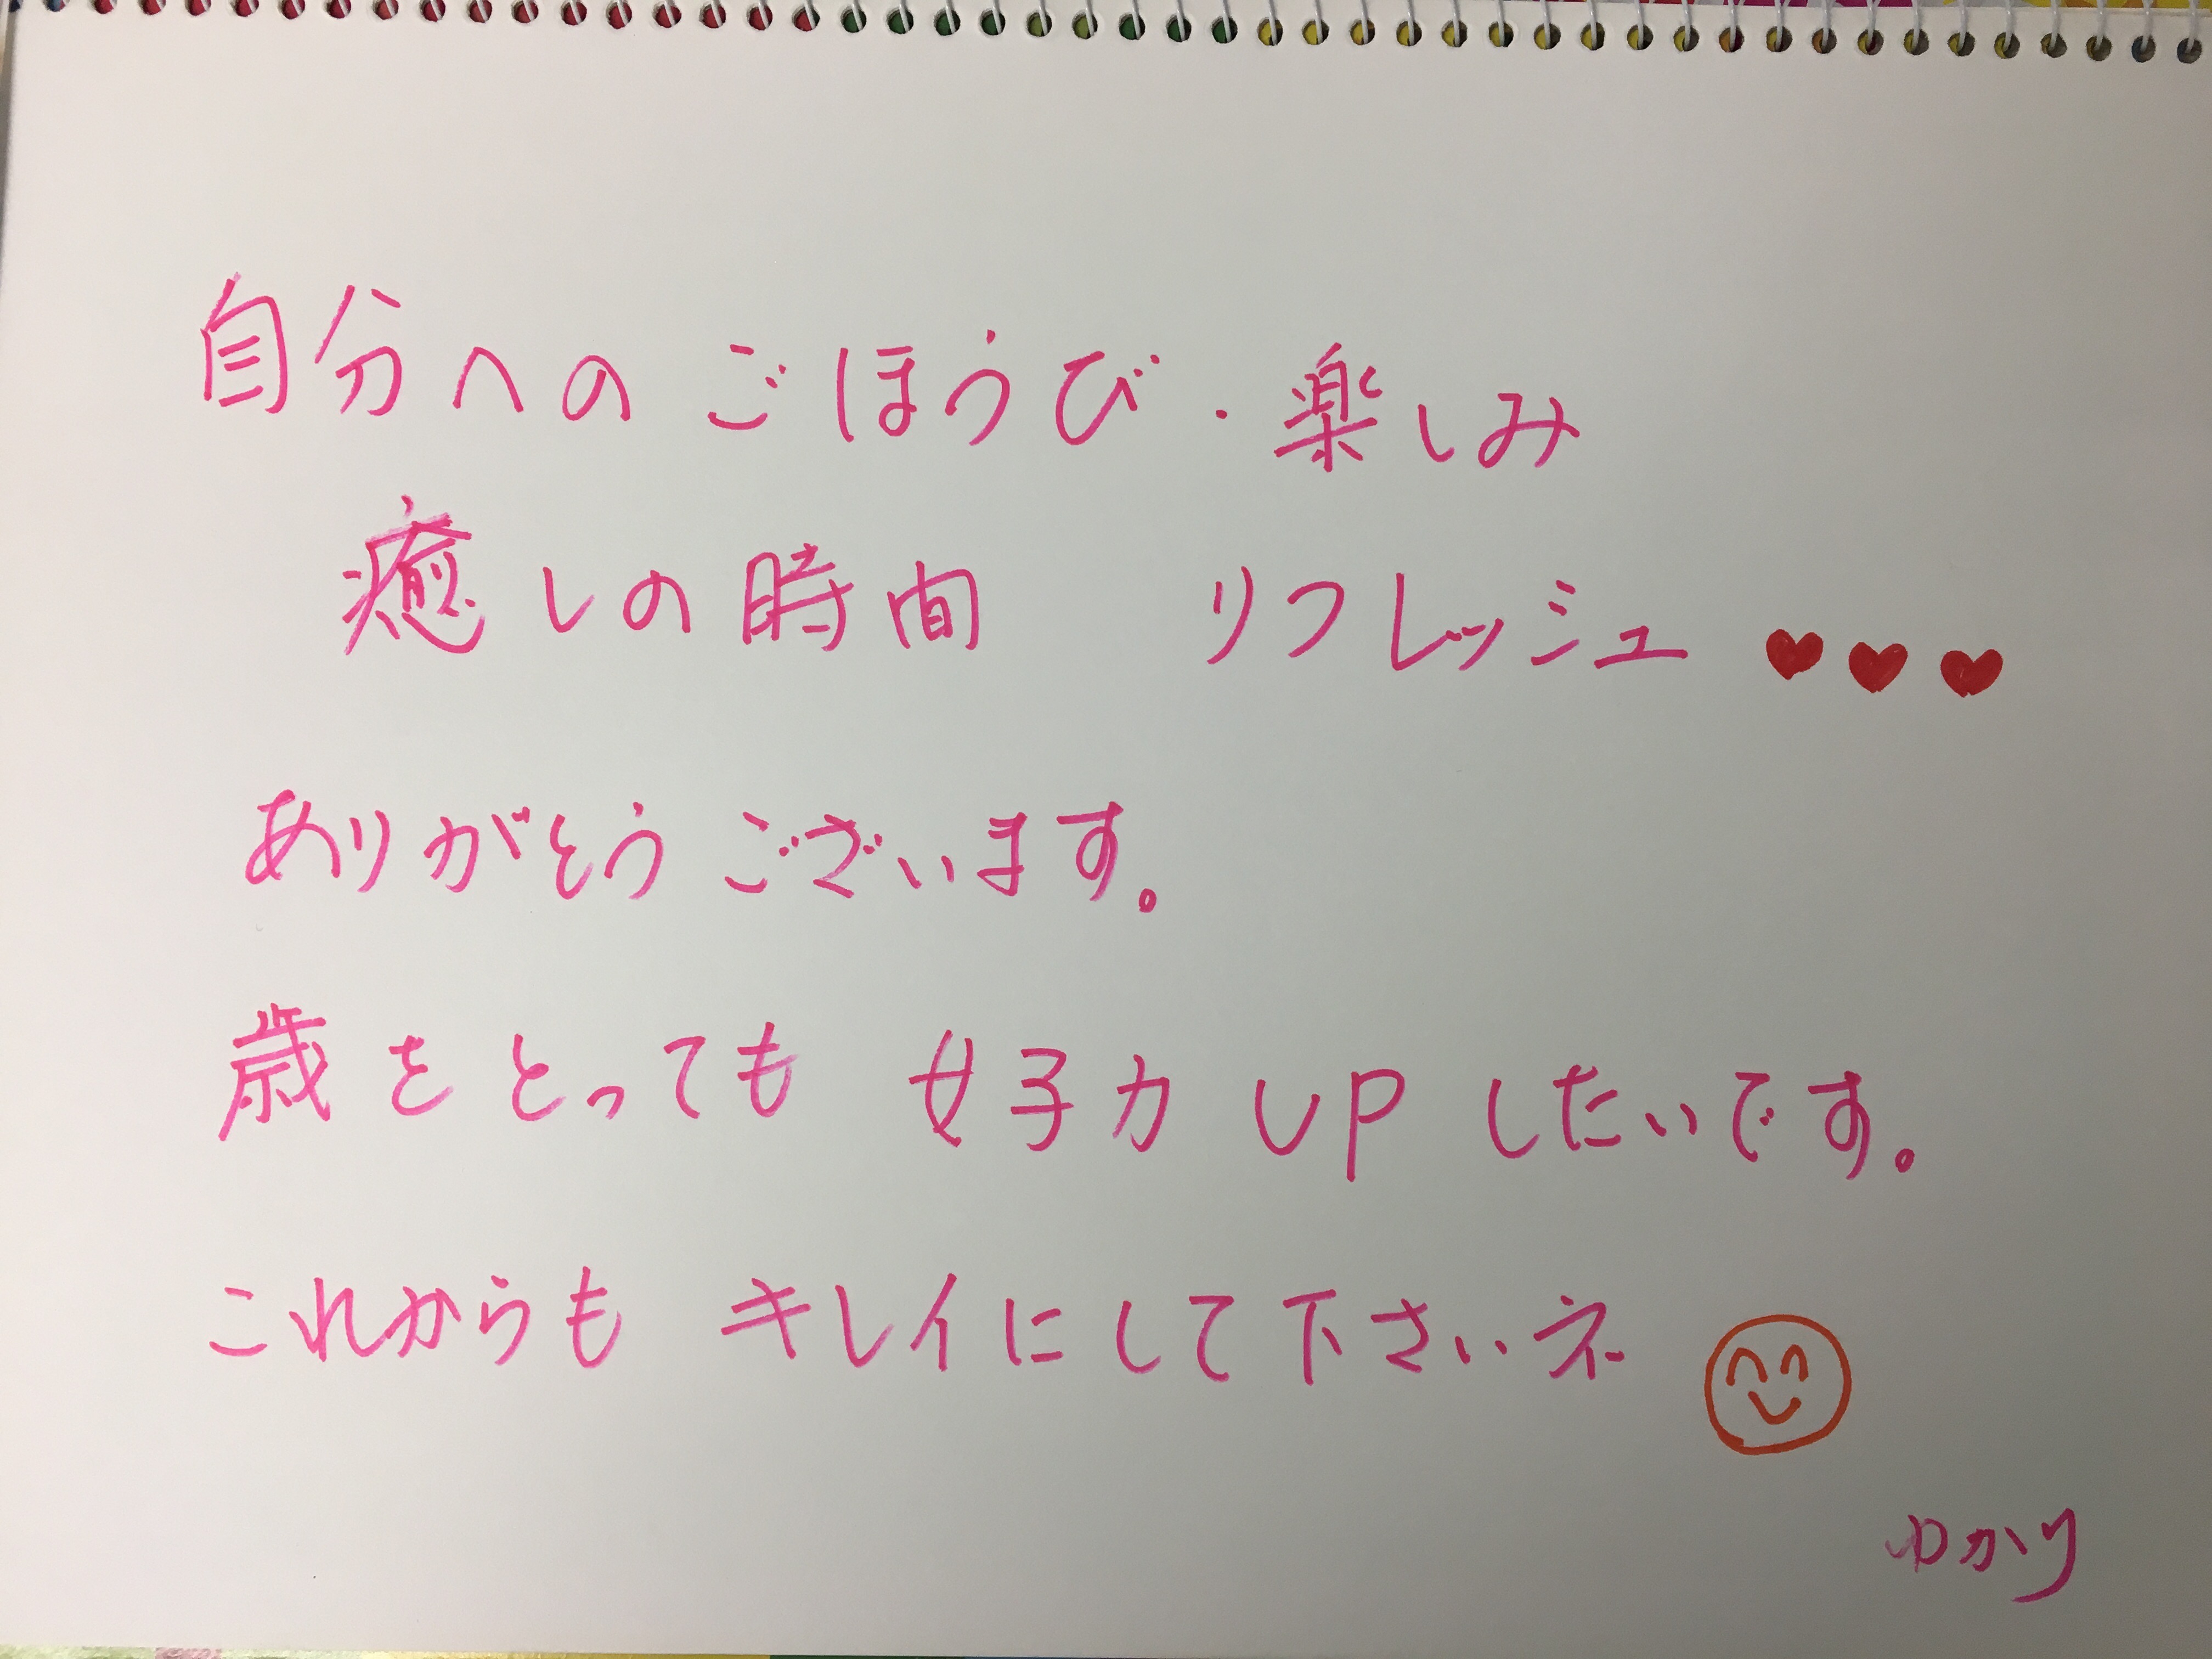 自分への ごほうび・楽しみ
癒しの時間 リフレッシュ ♥♥♥
ありがとう ございます。
歳をとっても 女子力 UP したいです。
これからも キレイにして下さいネ
ゆかり